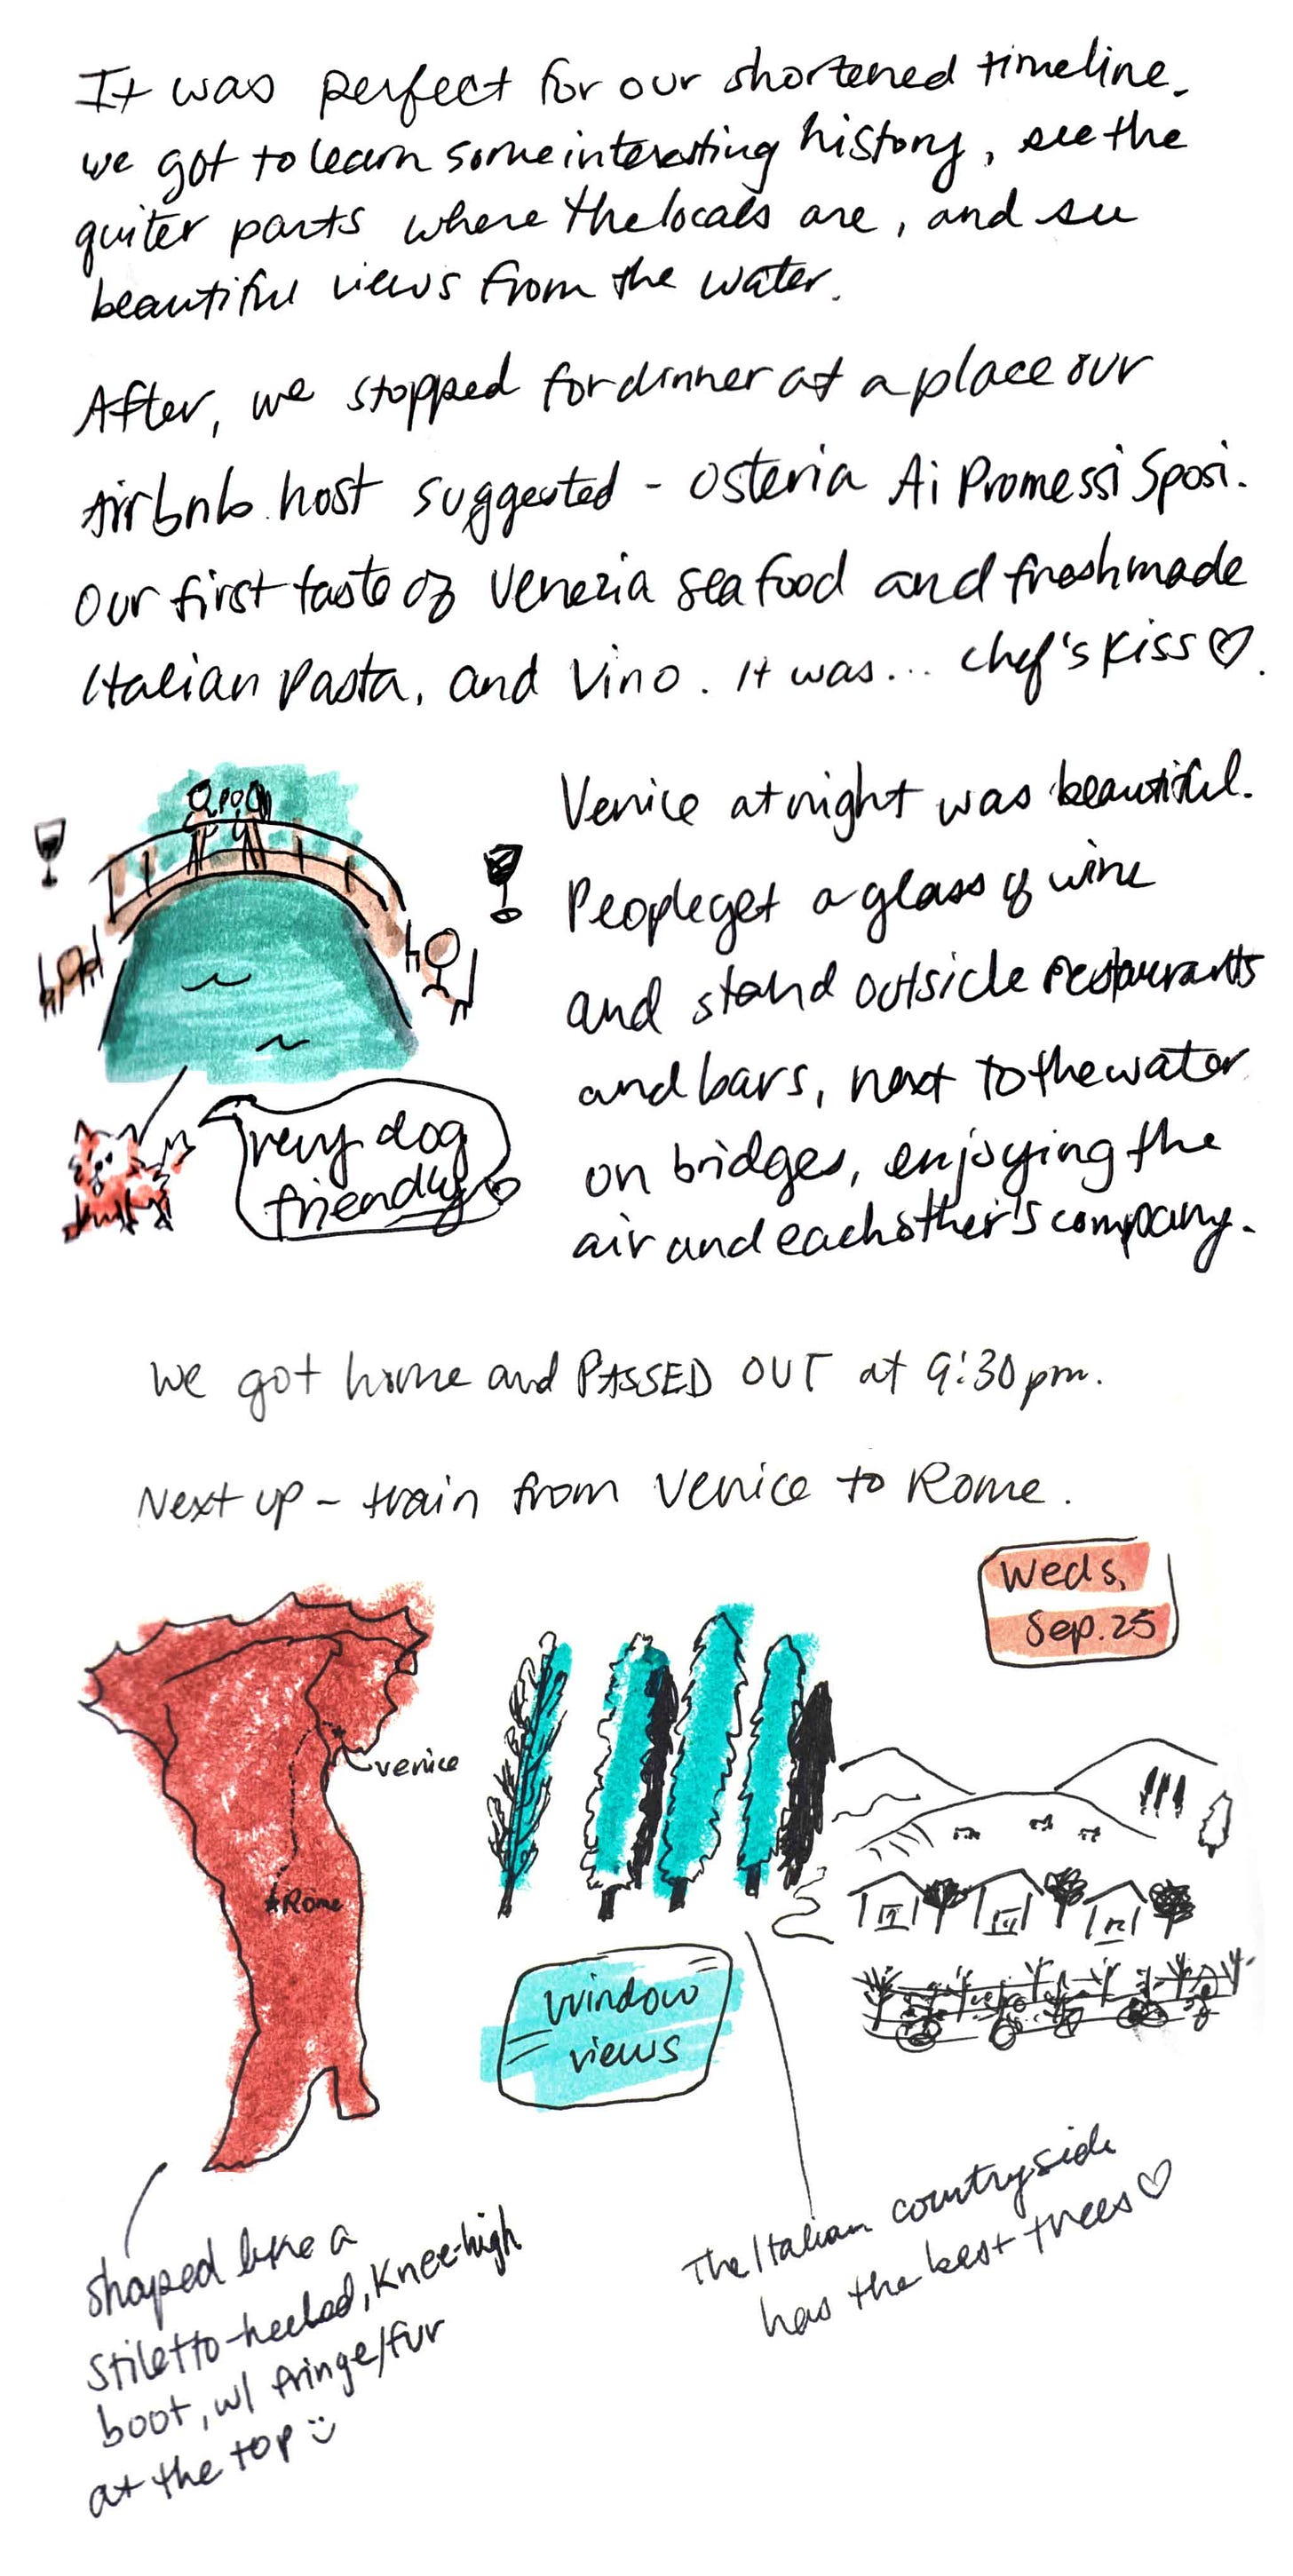 It was perfect for our shortened timeline.
we got to learn some interesting history, see the
quiter parts where the locals are, and see
beautiful views from the water.
After, we stopped for dinner at a place our
Airbnb host suggested - Osteria Ai Promessi Sposi.
Our first taste of Venezia seafood and freshmade
Italian Pasta, and Vino. It was... chef's kiss♡.
Venice at night was beautiful.
People get a glass of wine
and stand outside restaurants
and bars, next to the water
on bridges, enjoying the
air and eachother's company.
very dog
friendly
We got home and PASSED OUT at 9:30pm.
Next up - train from Venice to Rome.
Weds,
Sep. 25
venice
Rome
window
views
The Italian countryside
has the best trees♡
shaped like a
stiletto-heeled, knee-high
boot, w/ fringe/fur
at the top